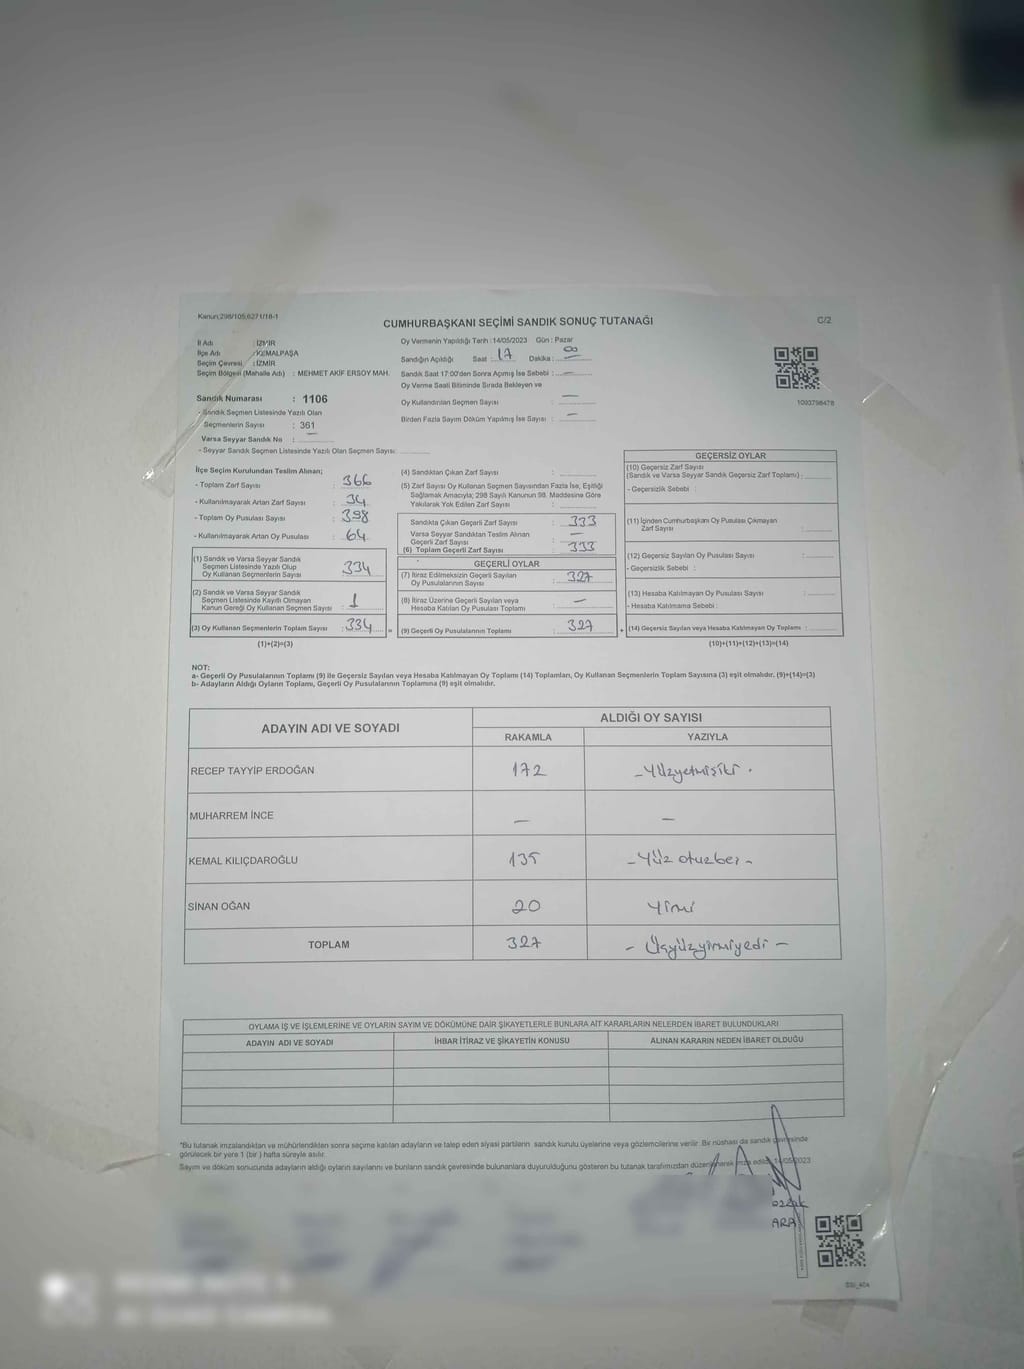 Kanun:298/105,6271/18-1
CUMHURBAŞKANI SEÇİMİ SANDIK SONUÇ TUTANAĞI
C/2
İl Adı : İZMİR
İlçe Adı : KEMALPAŞA
Seçim Çevresi : İZMİR
Seçim Bölgesi (Mahalle Adı) : MEHMET AKİF ERSOY MAH.
Sandık Numarası : 1106
- Sandık Seçmen Listesinde Yazılı Olan
Seçmenlerin Sayısı : 361
Varsa Seyyar Sandık No : —
- Seyyar Sandık Seçmen Listesinde Yazılı Olan Seçmen Sayısı:
Oy Vermenin Yapıldığı Tarih :14/05/2023 Gün : Pazar
Sandığın Açıldığı Saat : 17 Dakika : 00
Sandık Saat 17:00'den Sonra Açımış İse Sebebi : —
Oy Verme Saati Bitiminde Sırada Bekleyen ve
Oy Kullandırılan Seçmen Sayısı : —
Birden Fazla Sayım Döküm Yapılmış İse Sayısı : —
1003798478
İlçe Seçim Kurulundan Teslim Alınan;
- Toplam Zarf Sayısı : 366
- Kullanılmayarak Artan Zarf Sayısı : 34
- Toplam Oy Pusulası Sayısı : 398
- Kullanılmayarak Artan Oy Pusulası : 64
(1) Sandık ve Varsa Seyyar Sandık
Seçmen Listesinde Yazılı Olup
Oy Kullanan Seçmenlerin Sayısı : 334
(2) Sandık ve Varsa Seyyar Sandık
Seçmen Listesinde Kayıtlı Olmayan
Kanun Gereği Oy Kullanan Seçmen Sayısı : 1
(3) Oy Kullanan Seçmenlerin Toplam Sayısı : 334 =
(1)+(2)=(3)
(4) Sandıktan Çıkan Zarf Sayısı :
(5) Zarf Sayısı Oy Kullanan Seçmen Sayısından Fazla İse, Eşitliği
Sağlamak Amacıyla; 298 Sayılı Kanunun 98. Maddesine Göre
Yakılarak Yok Edilen Zarf Sayısı :
Sandıkta Çıkan Geçerli Zarf Sayısı : 333
Varsa Seyyar Sandıktan Teslim Alınan
Geçerli Zarf Sayısı : —
(6) Toplam Geçerli Zarf Sayısı : 333
GEÇERLİ OYLAR
(7) İtiraz Edilmeksizin Geçerli Sayılan
Oy Pusulalarının Sayısı : 327
(8) İtiraz Üzerine Geçerli Sayılan veya
Hesaba Katılan Oy Pusulası Toplamı : —
(9) Geçerli Oy Pusulalarının Toplamı : 327 +
GEÇERSİZ OYLAR
(10) Geçersiz Zarf Sayısı
(Sandık ve Varsa Seyyar Sandık Geçersiz Zarf Toplamı) :
- Geçersizlik Sebebi :
(11) İçinden Cumhurbaşkanı Oy Pusulası Çıkmayan
Zarf Sayısı :
(12) Geçersiz Sayılan Oy Pusulası Sayısı :
- Geçersizlik Sebebi :
(13) Hesaba Katılmayan Oy Pusulası Sayısı :
- Hesaba Katılmama Sebebi :
(14) Geçersiz Sayılan veya Hesaba Katılmayan Oy Toplamı :
(10)+(11)+(12)+(13)=(14)
NOT:
a- Geçerli Oy Pusulalarının Toplamı (9) ile Geçersiz Sayılan veya Hesaba Katılmayan Oy Toplamı (14) Toplamları, Oy Kullanan Seçmenlerin Toplam Sayısına (3) eşit olmalıdır. (9)+(14)=(3)
b- Adayların Aldığı Oyların Toplamı, Geçerli Oy Pusulalarının Toplamına (9) eşit olmalıdır.
ADAYIN ADI VE SOYADI
ALDIĞI OY SAYISI
RAKAMLA YAZIYLA
RECEP TAYYİP ERDOĞAN 172 - Yüzyetmişiki .
MUHARREM İNCE — —
KEMAL KILIÇDAROĞLU 135 - Yüz otuzbeş -
SİNAN OĞAN 20 Yirmi
TOPLAM 327 - Üçyüzyirmiyedi -
OYLAMA İŞ VE İŞLEMLERİNE VE OYLARIN SAYIM VE DÖKÜMÜNE DAİR ŞİKAYETLERLE BUNLARA AİT KARARLARIN NELERDEN İBARET BULUNDUKLARI
ADAYIN ADI VE SOYADI İHBAR İTİRAZ VE ŞİKAYETİN KONUSU ALINAN KARARIN NEDEN İBARET OLDUĞU
*Bu tutanak imzalandıktan ve mühürlendikten sonra seçime katılan adayların ve talep eden siyasi partilerin sandık kurulu üyelerine veya gözlemcilerine verilir. Bir nüshası da sandık çevresinde
görülecek bir yere 1 (bir) hafta süreyle asılır.
Sayım ve döküm sonucunda adayların aldığı oyların sayılarını ve bunların sandık çevresinde bulunanlara duyurulduğunu gösteren bu tutanak tarafımızdan düzenlenerek imza edildi. 14/05/2023